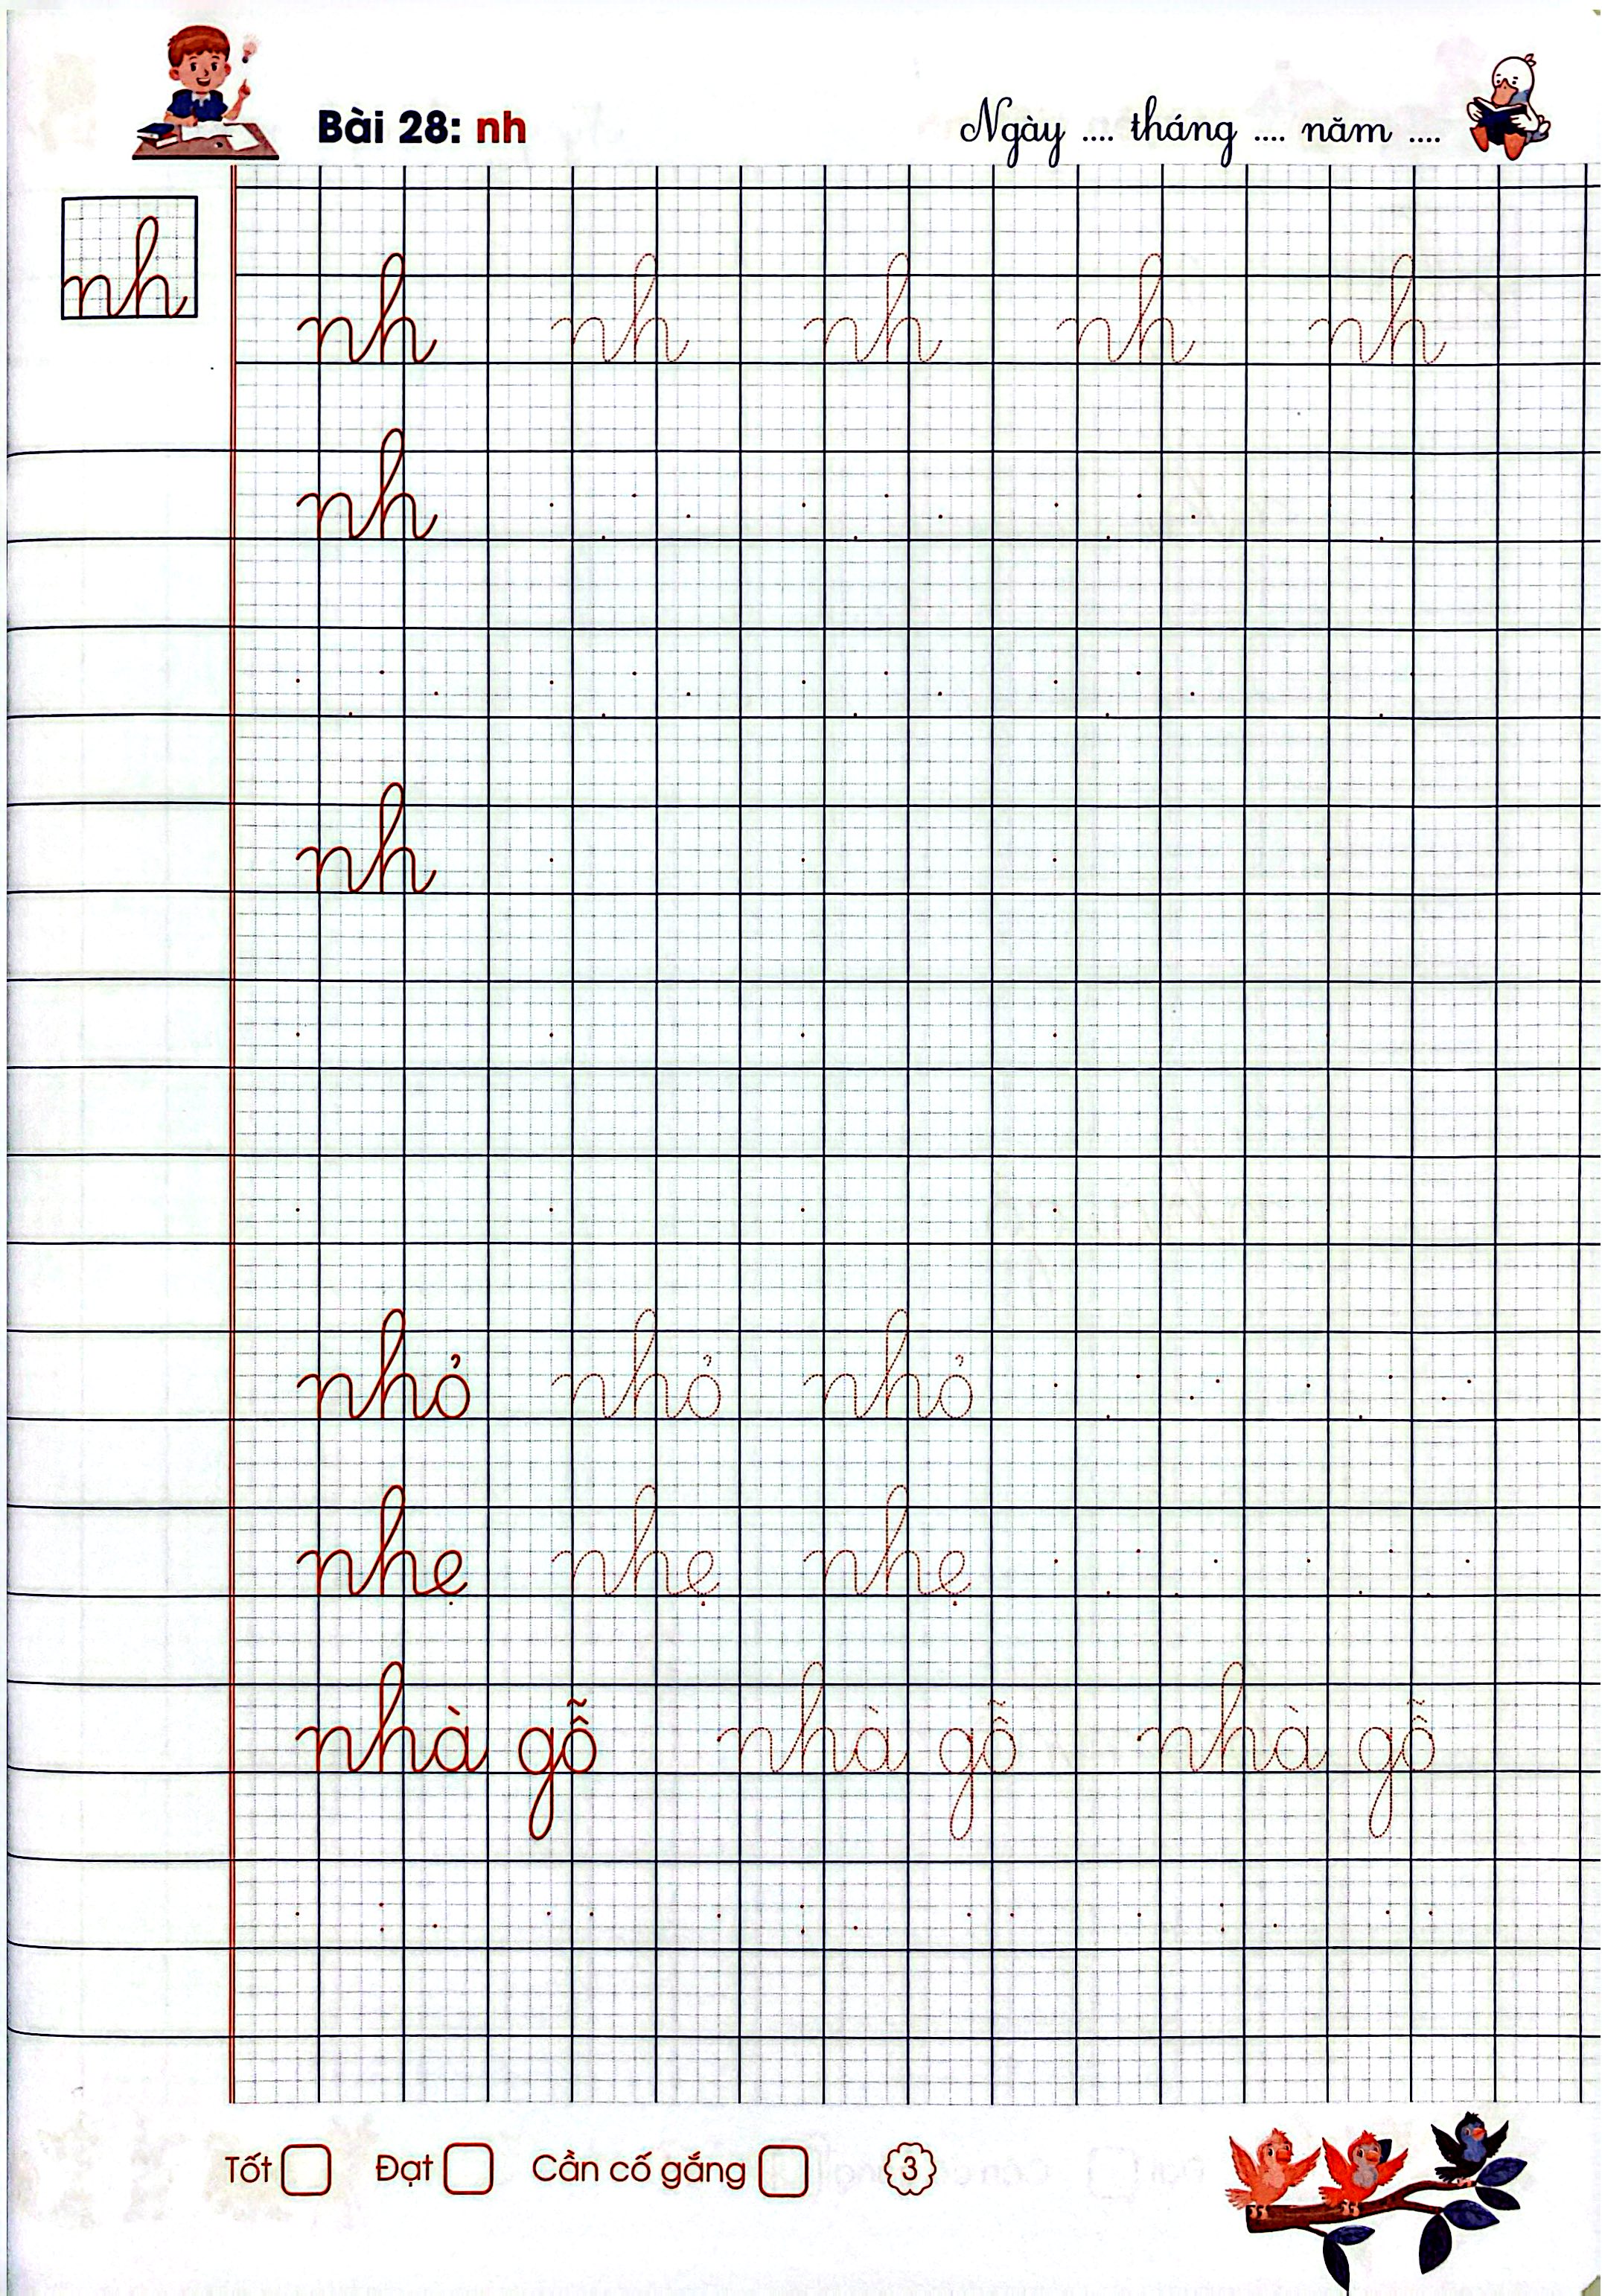 Bài 28: nh Ngày .... tháng .... năm ....
nh
nh nh nh nh nh
nh
nh
nhỏ nhỏ nhỏ
nhẹ nhẹ nhẹ
nhà gỗ nhà gỗ nhà gỗ
Tốt Đạt Cần cố gắng 3